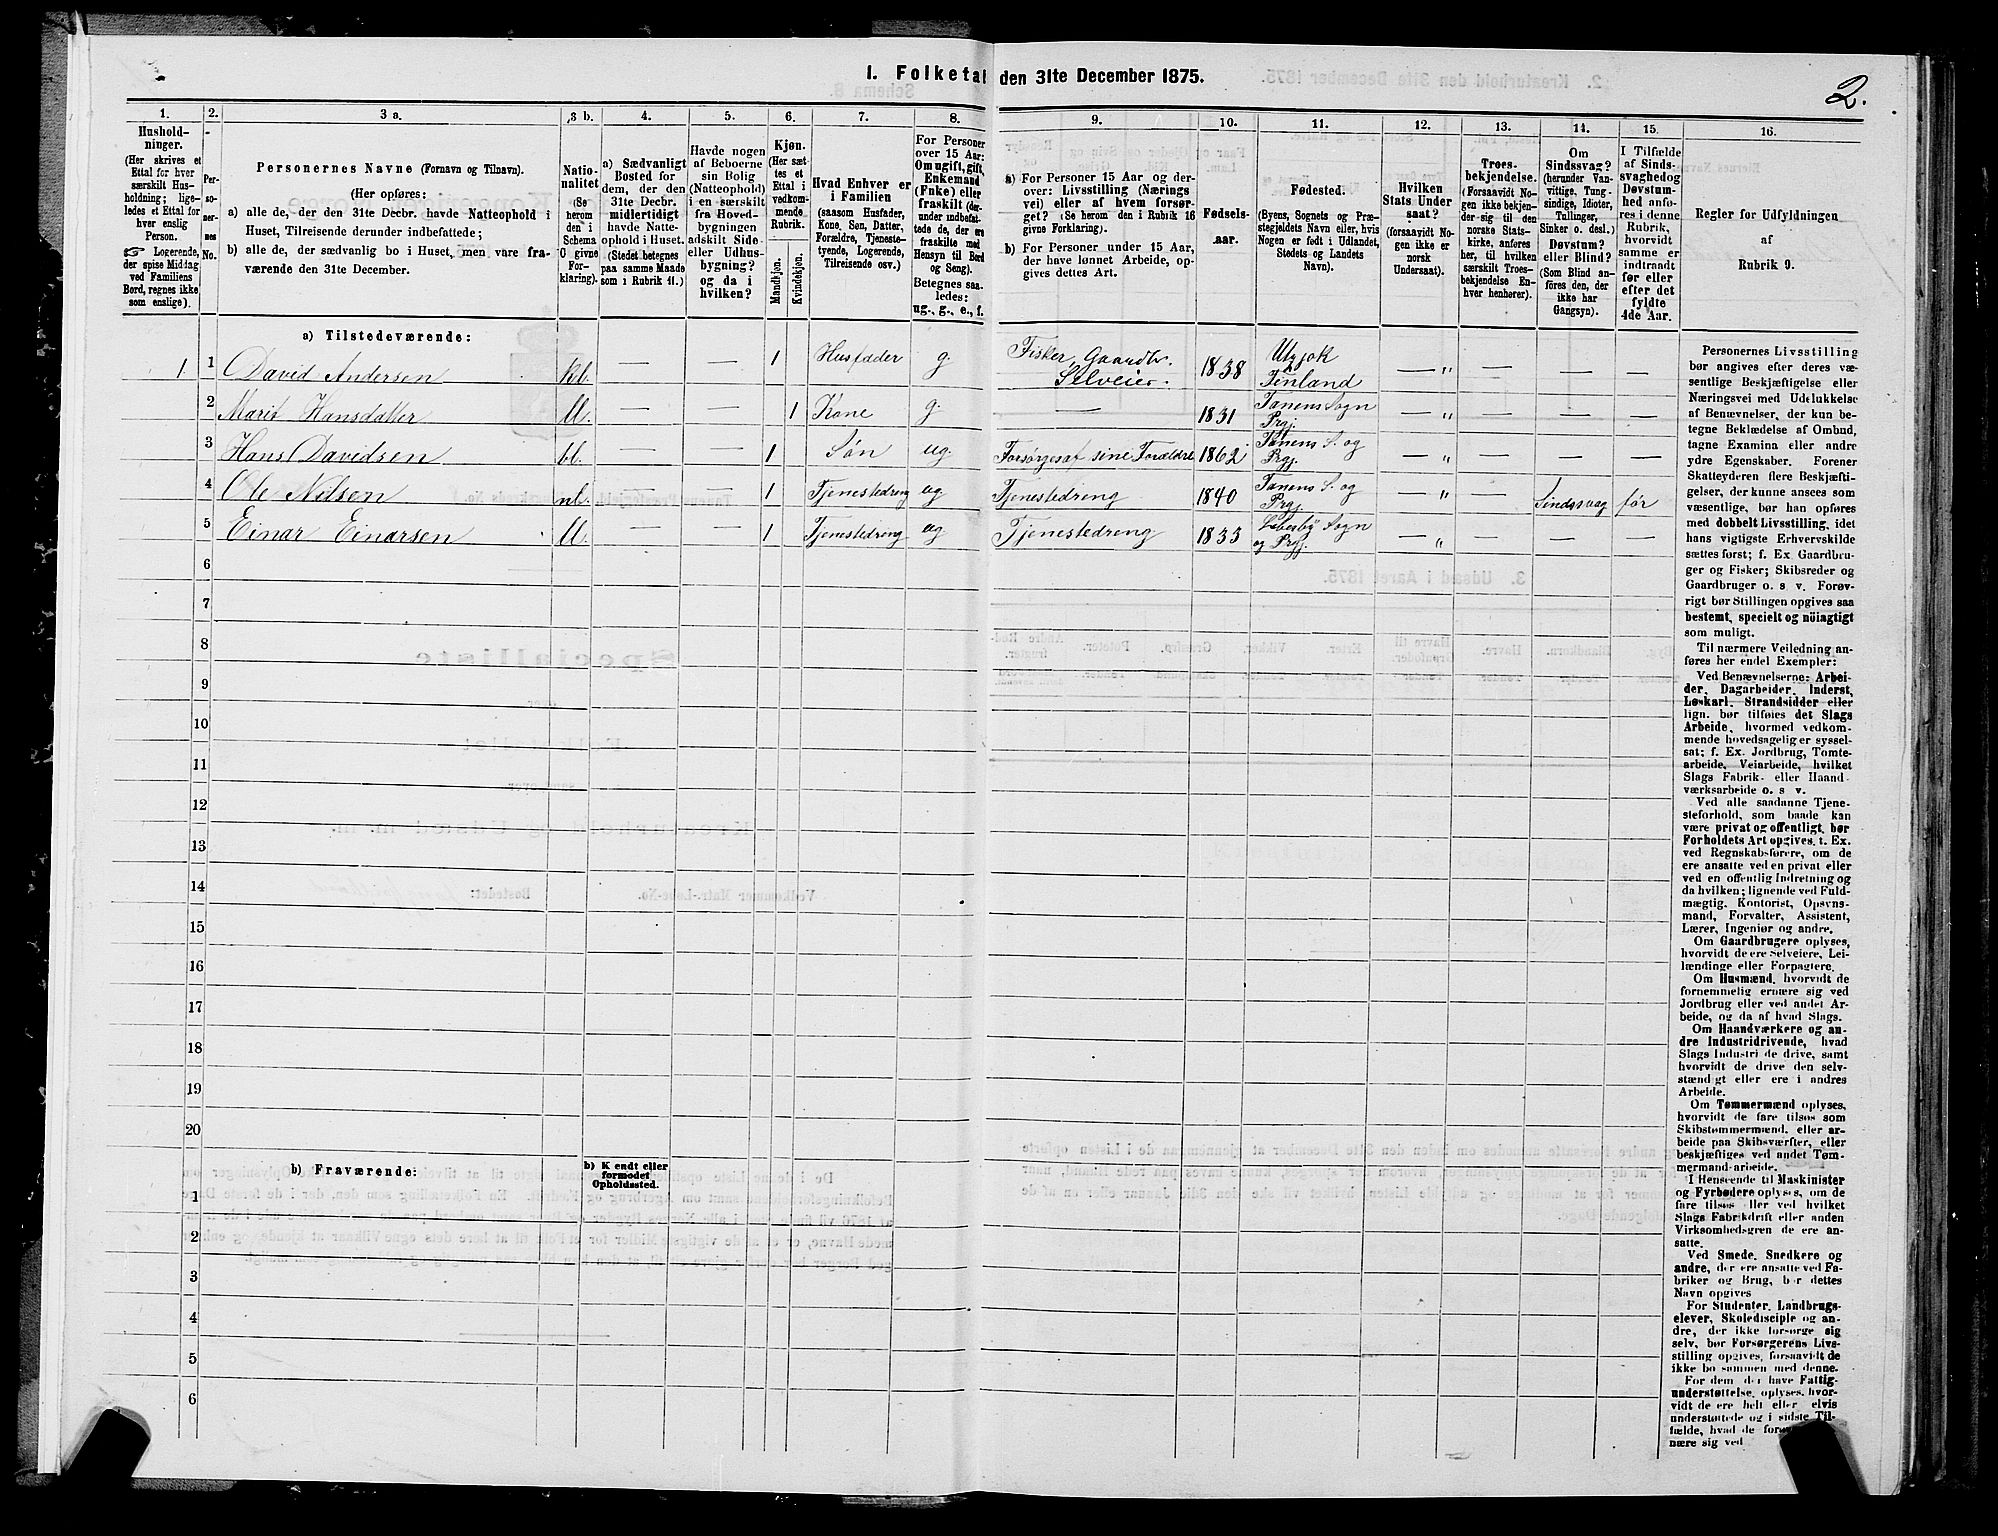 1. Folketal den 31te December 1875.
2.
1.
Hushold-
ninger.
(Her skrives et
Ettal for hver
særskilt Hus-
holdning; lige-
ledes et Ettal for
hver enslig
Person.
Logerende,
der spise Middag
ved Familiens
Bord, regnes ikke
som enslige).
2.
Per-
sone-
nes
No.
3 a.
Personernes Navne (Fornavn og Tilnavn).
(Her opføres:
a) alle de, der den 31te Decbr. havde Natteophold i
Huset, Tilreisende derunder indbefattede;
b) alle de, der sædvanlig bo i Huset, men vare fra-
værende den 31te December.
3 b.
Natio-
nalitet
(Se
herom
den i
Schema
O givne
For-
klaring).
4.
a) Sædvanligt
Bosted for
dem, der den
31te Decbr.
midlertidigt
havde Natte-
ophold i Huset.
(Stedet betegnes
paa samme Maade
som i Rubrik 11.)
5.
Havde nogen
af Beboerne
sin Bolig
(Natteophold)
i en særskilt
fra Hoved-
bygningen
adskilt Side-
eller Udhus-
bygning?
og da i
hvilken?
6.
Kjøn.
(Her sæt-
tes et
Ettal i
vedkom-
mende
Rubrik.
Mandkjøn.
Kvindekjøn.
7.
Hvad Enhver er
i Familien
(saasom Husfader,
Kone, Søn, Datter,
Forældre, Tjeneste-
tyende, Logerende,
Tilreisende osv.)
8.
For Personer
over 15 Aar:
Om ugift, gift,
Enkemand
(Fnke) eller
fraskilt (der-
under indbefat-
tede de, der ere
fraskilte med
Hensyn til Bord
og Seng).
Betegnes saa-
ledes:
ug., g., e., f.
9.
a) For Personer 15 Aar og der-
over: Livsstilling (Nærings
vei) eller af hvem forsør-
get? (Se herom den i Rubrik 16
givne Forklaring).
b) For Personer under 15 Aar,
der have lønnet Arbeide, op-
gives dettes Art.
10.
Fødsels-
aar.
11.
Fødested.
(Byens, Sognets og Præ-
stegjeldets Navn eller, hvis
Nogen er født i Udlandet,
Stedets og Landets
Navn).
12.
Hvilken
Stats Under
saat?
(forsaavidt No-
gen ikke er
norsk
Undersaat).
13.
Troes-
bekjendelse.
(Forsaavidt No-
gen ikke bekjen-
der sig til den
norske Stats-
kirke, anføres
her, til hvilken
særskilt Troes-
bekjendelse En-
hver henhører).
14.
Om
Sindssvag?
(herunder Van-
vittige, Tung-
sindige, Idioter,
Tullinger,
Sinker o. desl.)
Døvstum?
eller Blind?
(Som Blind an-
føres den, der
ikke har
Gangsyn).
15.
I Tilfælde
af Sinds-
svaghed og
Døvstum-
hed anfø-
res i denne
Rubrik,
hvorvidt
samme er
indtraadt
før eller
efter det
fyldte
4de Aar.
16.
Regler for Udfyldningen
af
Rubrik 9.
a) Tilstedeværende:
1 1 David Andersen kb. — — 1 Husfader g. Fisker, Gaardbr. Selveier. 1838 Utzjok Finland — " — — —
2 Marit Hansdatter ll. — — 1 Kone g. — 1831 Tanens Sogn Prgj. — " — — —
3 Hans Davidsen bl. — — 1 Søn ug. Forsørges af sine Forældre 1862 Tanens S. og Prgj. — " — — —
4 Ole Nilsen nl. — — 1 Tjenestedreng ug Tjenestedreng 1840 Tanens S. og Prgj. — " — Sindssvag før
5 Einar Einarsen ll. — — 1 Tjenestedreng ug Tjenestedreng 1833 Lebesby Sogn og Prgj. — " — — —
6
7
8
9
10
11
12
13
14
15
16
17
18
19
20
b) Fraværende:
b) Kendt eller
formodet
Opholdssted.
1
2
3
4
5
6
Personernes Livsstilling
bør angives efter deres væ-
sentlige Beskjæftigelse eller
Næringsvei med Udelukkelse
af Benævnelser, der kun be-
tegne Beklædelse af Ombud,
tagne Examina eller andre
ydre Egenskaber. Forener
Skatteyderen flere Beskjæfti-
gelser, der kunne ansees som
væsentlige, bør han opføres
med dobbelt Livsstilling, idet
hans vigtigste Erhvervskilde
sættes først; f. Ex Gaardbru-
ger og Fisker; Skibsreder og
Gaardbruger o. s v. Forøv-
rigt bør Stillingen opgives saa
bestemt, specielt og nöiagtigt
som muligt.
Til nærmere Veiledning an-
føres her endel Exempler:
Ved Benævnelserne: Arbei-
der, Dagarbeider, Inderst,
Løskarl, Strandsidder eller
lign. bør tilføies det Slags
Arbeide, hvormed vedkom-
mende hovedsagelig er syssel-
sat; f. Ex. Jordbrug, Tomte-
arbeide, Veiarbeide, hvilket
Slags Fabrik- eller Haand-
værksarbeide o. s v.
Ved alle saadanne Tjene-
steforhold, som baade kan
være privat og offentligt, bør
Forholdets Art opgives, t. Ex.
ved Regnskabsførere, om de
ere ansatte ved en privat eller
ved en offentlig Indretning og
da hvilken; lignende ved Fuld-
mægtig, Kontorist, Opsyns-
mand, Forvalter, Assistent,
Lærer, Ingeniør og andre.
Om Gaardbrugere oplyses,
hvorvidt de ere Selveiere, Lei-
lændinge eller Forpagtere.
Om Husmænd, hvorvidt de
fornemmelig ernære sig ved
Jordbrug eller ved andet Ar-
beide, og da af hvad Slags.
Om Haandværkere og an-
dre Industridrivende, hvad
Slags Industri de drive, samt
hvorvidt de drive den selv-
stændigt eller ere i andres
Arbeide.
Om Tømmermænd oplyses,
hvorvidt de fare tilsøs som
Skibstømmermænd, eller ar-
beide paa Skibsværfter, eller
beskjæftiges ved andet Tøm-
mermand-arbeide.
I Henseende til Maskinister
og Fyrbødere oplyses, om de
fare tilsøs eller ved hvilket
Slags Fabrikdrift eller anden
Virksomhedsgren de ere an-
satte.
Ved Smede, Snedkere og
andre, der ere ansatte ved Fa-
briker og Brug, bør dettes
Navn opgives
For Studenter, Landbrugs-
elever, Skoledisciple og an-
dre, der ikke forsørge sig
selv, bør Forsørgerens Livs-
stilling opgives, forsaavidt de
ikke bo sammen med denne.
For dem, der have Fattig-
understøttelse, oplyses, hvor-
vidt de ere helt eller elvis
understøttede og i sidste Til-
fælde, hvad de forøv
nære sig ved